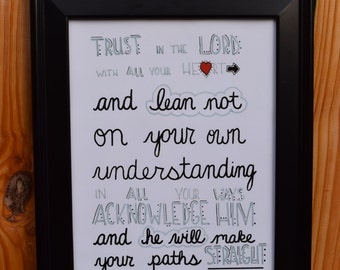 TRUST IN THE LORD
WITH ALL YOUR HEART
and lean not
on your own
understanding
IN ALL YOUR WAYS
ACKNOWLEDGE HIM
and he will make
your paths STRAIGHT